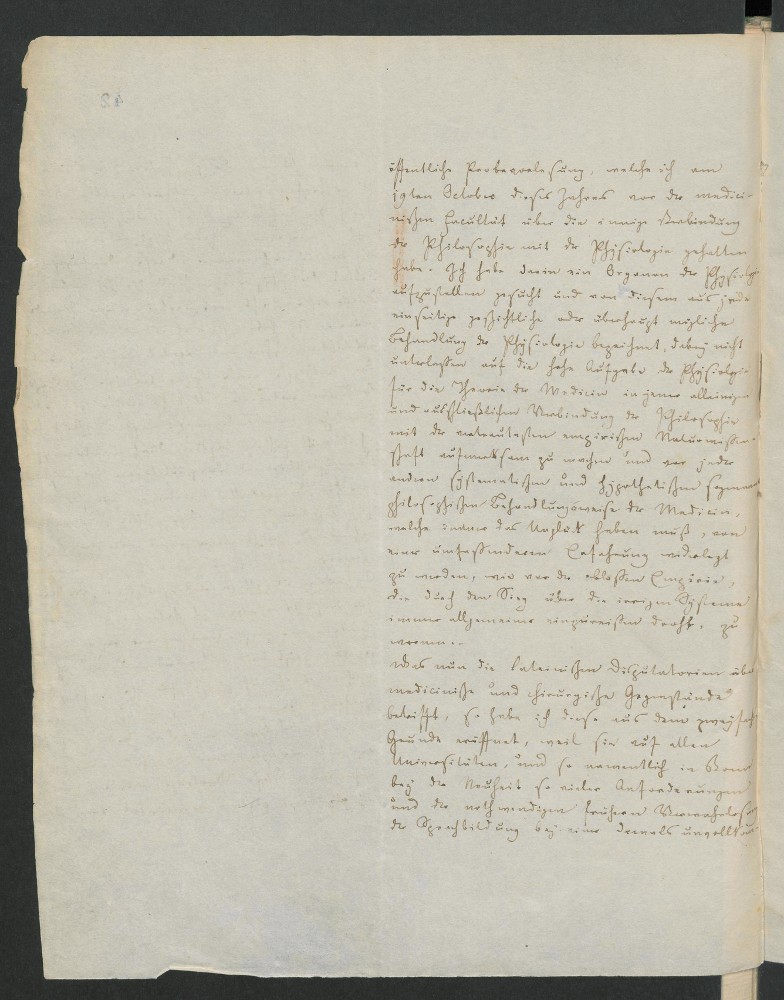 öffentliche Probevorlesung, welche ich am
19ten October dieses Jahres vor der medici-
nischen Facultät über die innige Verbindung
der Philosophie mit der Physiologie gehalten
habe. Ich habe darin ein Organon der Physiologie
aufzustellen gesucht und von diesem aus jede
einseitige geschichtliche oder überhaupt mögliche
Behandlung der Physiologie bezeichnet, dabey nicht
unterlassen auf die hohe Aufgabe der Physiologie
für die Theorie der Medicin in jener alleinigen
und ausschließlichen Verbindung der Philosophie
mit der vertrautesten empirischen Naturwissen-
schaft aufmerksam zu machen und vor jeder
andern systematischen und hypothetischen sogenannt
philosophischen Behandlungsweise der Medicin,
welche immer das Unglück haben muß, von
einer umfassenderen Erfahrung widerlegt
zu werden, wie vor der oblassen Empirie,
die durch den Sieg über die irrigen Systeme
immer allgemeiner einzureissen droht, zu
warnen.-
Was nun die lateinischen Disputatorien über
medicinische und chirurgische Gegenstände
betrifft, so habe ich diese aus dem zweyfachen
Grunde eröffnet, weil sie auf allen
Universitäten, und so namentlich in Bonn
bey der Neuheit so vieler Anforderungen
und der nothwendigen frühern
der Sprachbildung bey einer damals